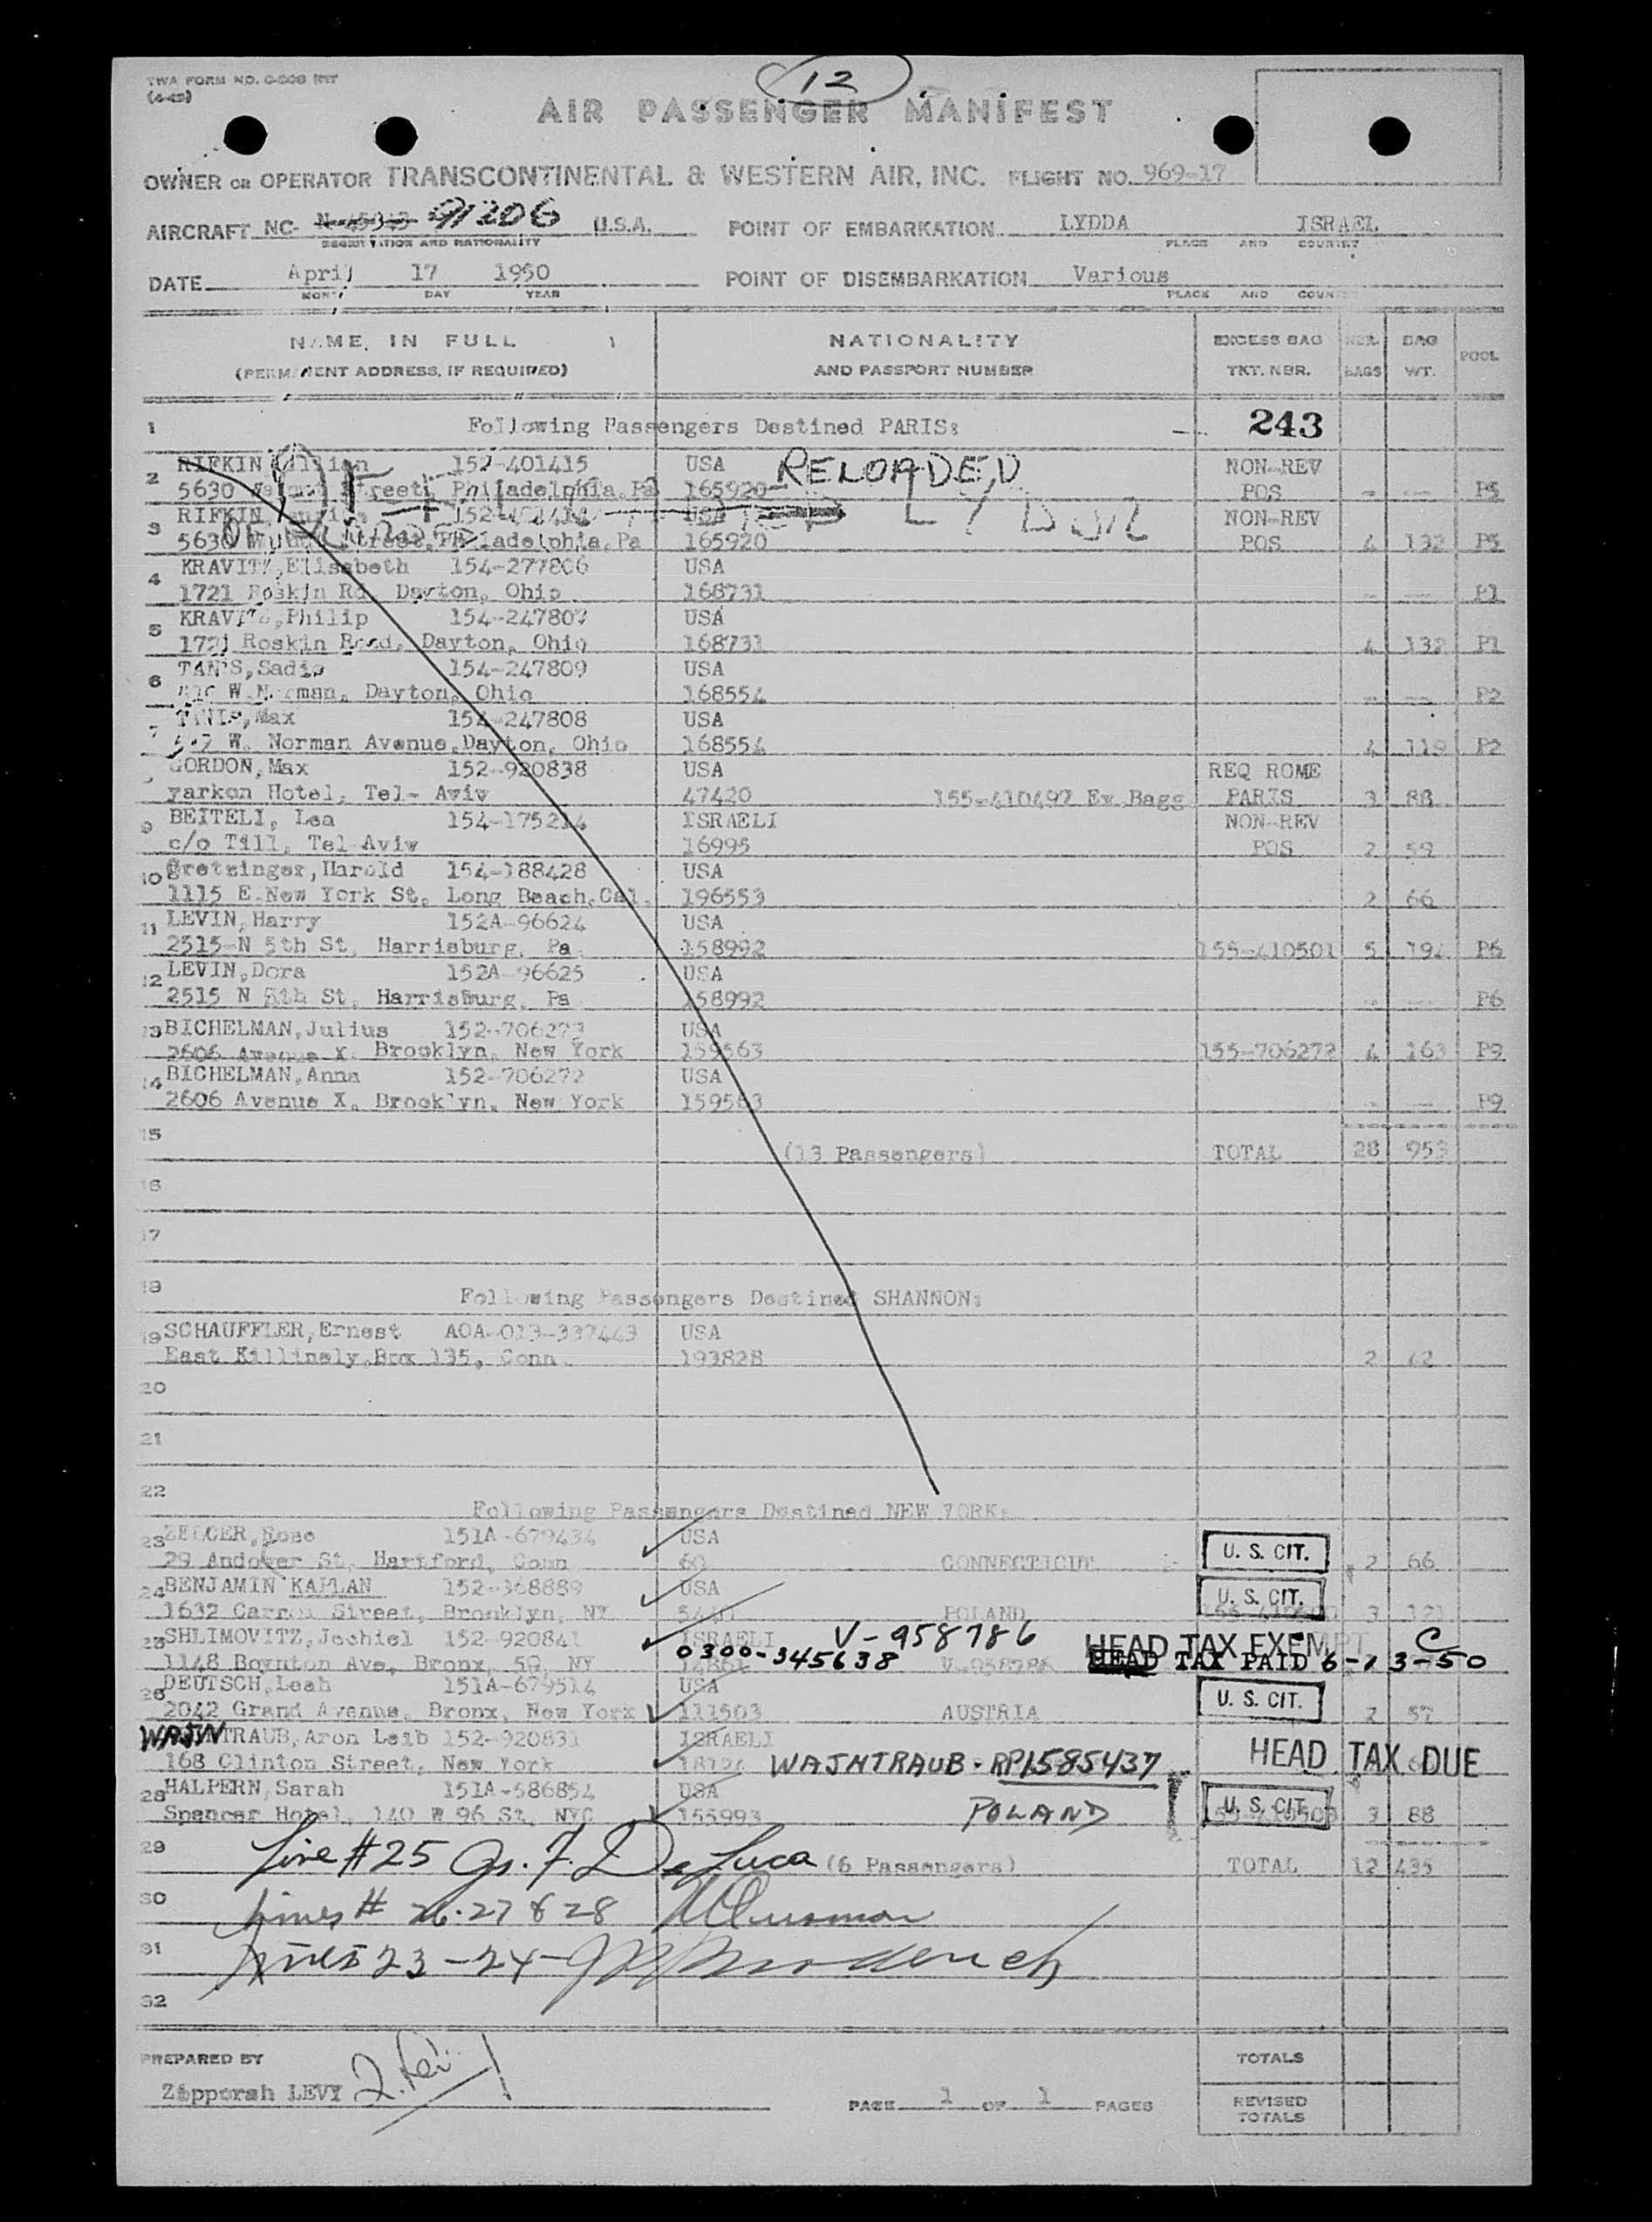 TWA FORM NO.
12
AIR PASSENGER MANIFEST
OWNER OR OPERATOR TRANSCONTINENTAL & WESTERN AIR, INC. FLIGHT NO. 969-17
AIRCRAFT NC- 91206 U.S.A. POINT OF EMBARKATION LYDDA ISRAEL
REGISTRATION AND NATIONALITY PLACE AND COUNTRY
DATE April 17 1950 POINT OF DISEMBARKATION Various
MONTH DAY YEAR PLACE AND COUNTRY
NAME IN FULL NATIONALITY EXCESS BAG NBR. BAG POOL
(PERMANENT ADDRESS, IF REQUIRED) AND PASSPORT NUMBER TKT. NBR. BAGS WT.
1 Following Passengers Destined PARIS: 243
2 RIFKIN 152-401415 USA RELOADED NON-REV
5630 Street, Philadelphia, Pa 165920 POS - -- P5
3 RIFKIN, USA NON-REV
5630 Street, Philadelphia, Pa 165920 POS 4 132 P5
4 KRAVITZ, Elisabeth 154-277806 USA
1721 Roskin Rd, Dayton, Ohio 168731 - -- P1
5 KRAVITZ, Philip 154-247807 USA
1721 Roskin Road, Dayton, Ohio 168731 4 132 P1
6 TANIS, Sadie 154-247809 USA
W. Norman, Dayton, Ohio 168554 - -- P2
7 TANIS, Max 154-247808 USA
W. Norman Avenue, Dayton, Ohio 168554 4 119 P2
GORDON, Max 152-920838 USA REQ ROME
Yarkon Hotel, Tel- Aviv 47420 155-410497 Ex Bagg PARIS 3 88
9 BEITELI, Lea 154-175214 ISRAELI NON-REV
c/o Till, Tel Aviv 16995 POS 2 59
10 Gretzinger, Harold 154-188428 USA
1115 E.New York St, Long Beach, Cal. 196553 2 66
11 LEVIN, Harry 152A-96624 USA
2515-N 5th St, Harrisburg, Pa 158992 155-410501 5 194 P6
12 LEVIN, Dora 152A-96625 USA
2515 N 5th St, Harrisburg, Pa 158992 - -- P6
13 BICHELMAN, Julius 152-706273 USA
2606 Avenue X, Brooklyn, New York 159563 155-706272 4 163 P9
14 BICHELMAN, Anna 152-706272 USA
2606 Avenue X, Brooklyn, New York 159563 - -- P9
15 (13 Passengers) TOTAL 28 953
16
17
18 Following Passengers Destined SHANNON:
19 SCHAUFFLER, Ernest AOA-013-337443 USA
East Killingly, Box 135, Conn. 193828 2 62
20
21
22 Following Passengers Destined NEW YORK:
23 Rose 151A-679434 USA
29 Andover St, Hartford, Conn 60 CONNECTICUT U. S. CIT. 2 66
24 BENJAMIN KAPLAN 152-368889 USA
1632 Carrol Street, Brooklyn, NY POLAND U. S. CIT. 3 121
25 SHLIMOVITZ, Jechiel 152-920841 ISRAELI V-958786 HEAD TAX EXEMPT C
1148 Boynton Ave, Bronx, 59, NY 0300-345638 HEAD TAX PAID 6-13-50
26 DEUTSCH, Leah 151A-679514 USA
2042 Grand Avenue, Bronx, New York 111503 AUSTRIA U. S. CIT. 2 57
WAJNTRAUB, Aron Leib 152-920831 ISRAELI
168 Clinton Street, New York WAJNTRAUB - RP1585437 HEAD TAX DUE
28 HALPERN, Sarah 151A-586854 USA
Spencer Hotel, 140 W 96 St, NYC 155993 POLAND U. S. CIT. 3 88
29 Line #25 Gs. F. De Luca (6 Passengers) TOTAL 12 435
30 Lines # 26.27 & 28
31 Lines 23-24-
32
PREPARED BY TOTALS
Zipporah LEVY
PAGE 1 OF 1 PAGES REVISED
TOTALS